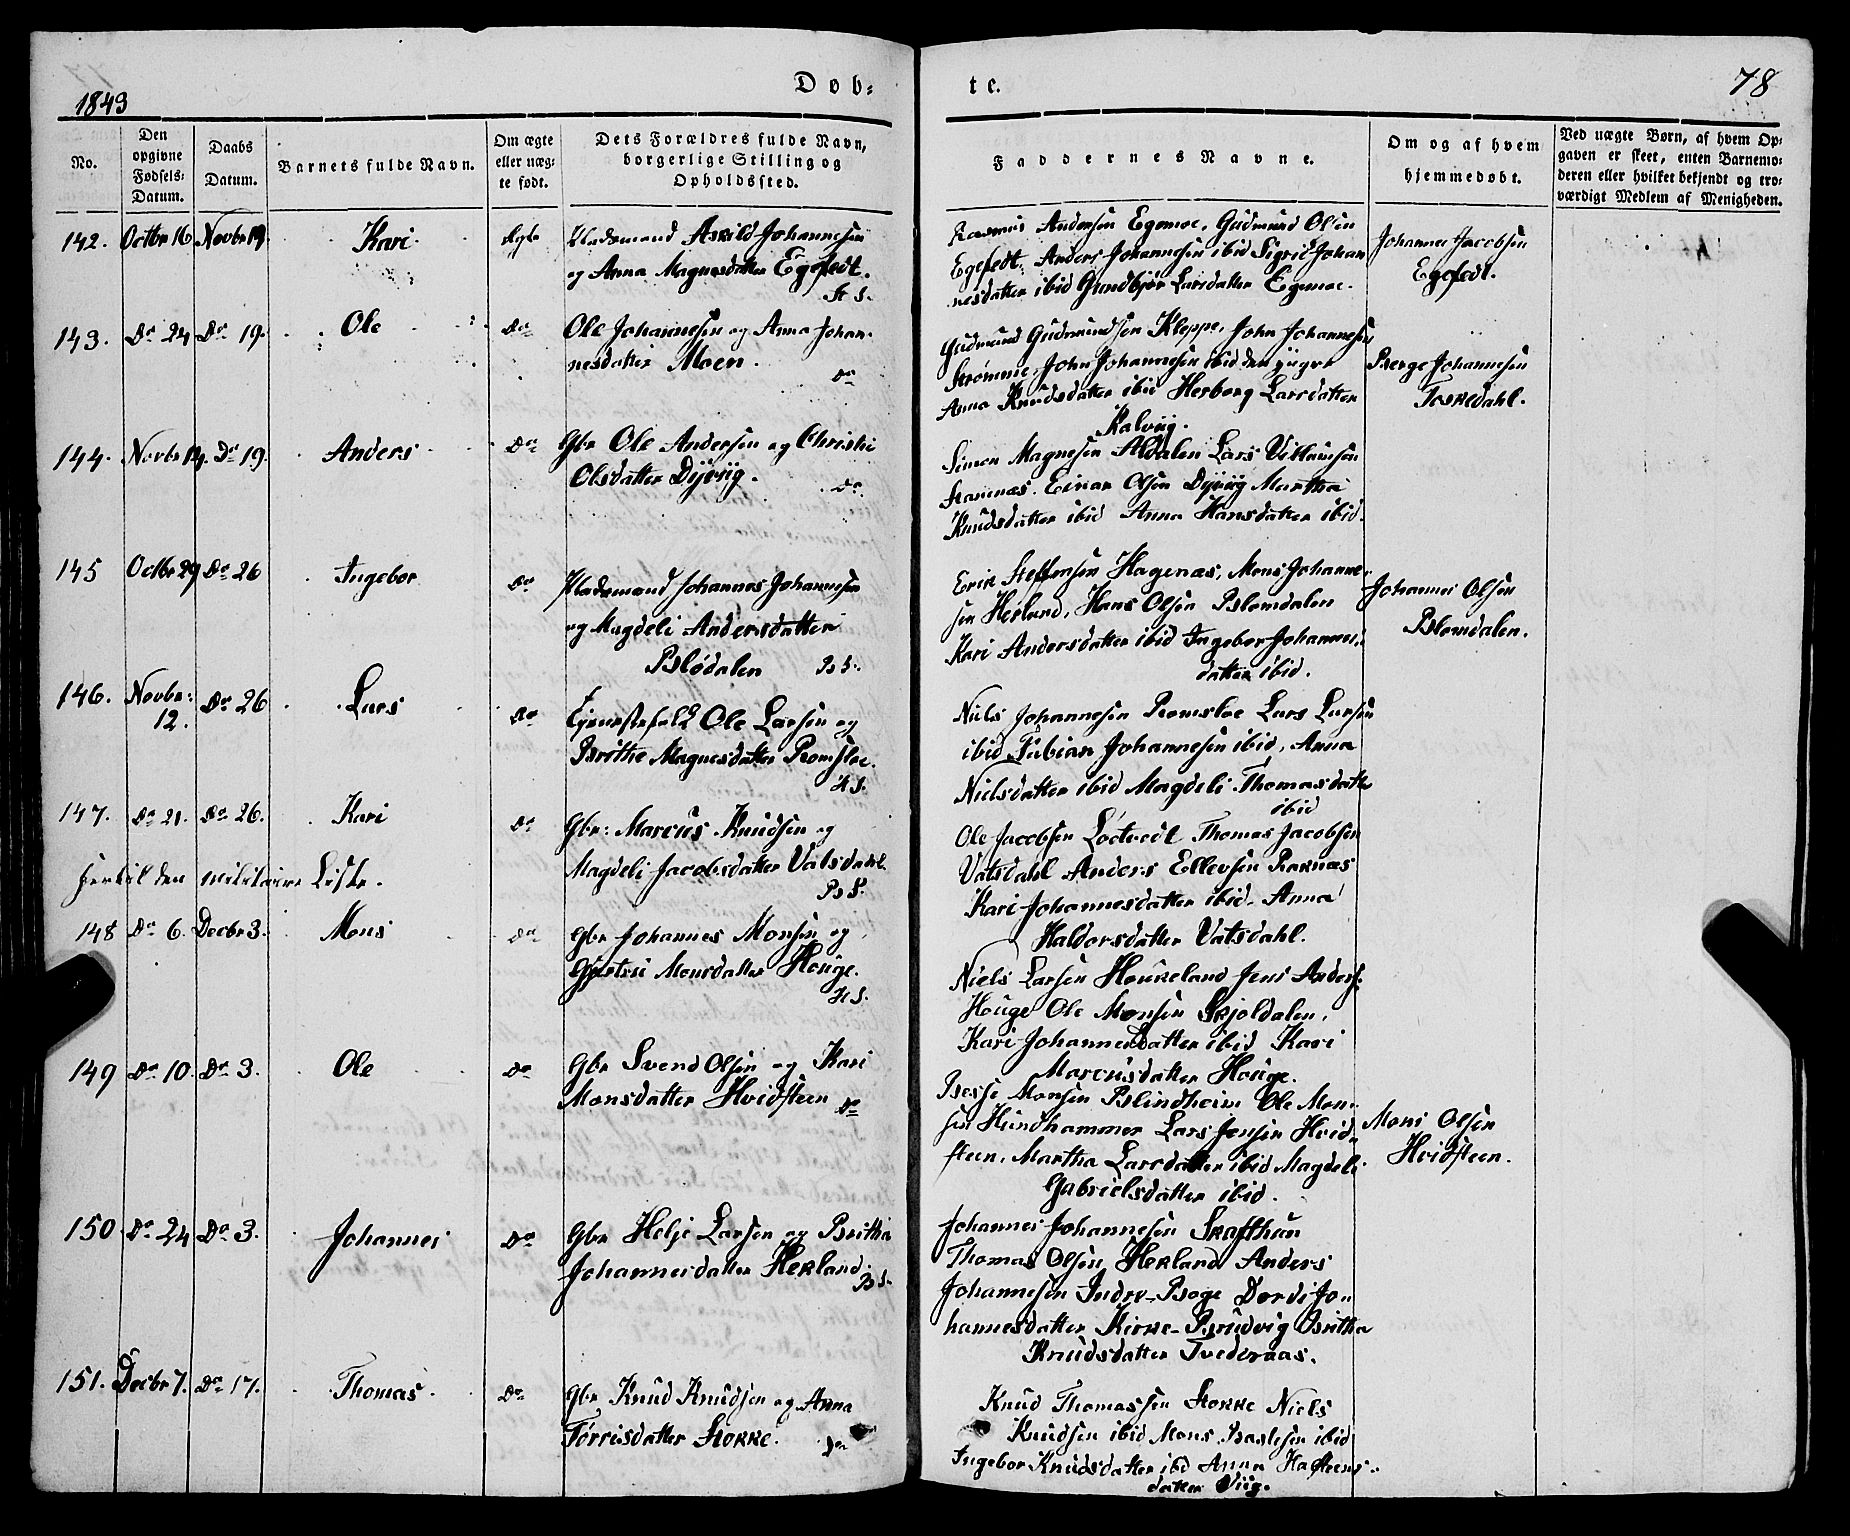 1843
Døb-
te.
78
No.
Den opgivne Fødsels-Datum.
Daabs Datum.
Barnets fulde Navn.
Om ægte eller uæg-te født.
Dets Forældres fulde Navn, borgerlige Stilling og Opholdssted.
Faddernes Navne.
Om og af hvem hjemmedøbt.
Ved uægte Børn, af hvem Op-gaven er skeet, enten Barnemo-deren eller hvilket bekjendt og tro-værdigt Medlem af Menigheden.
142. Octbr 16 Novbr 19 Kari Ægte Pladsmand Askild Johannesen
og Anna Magnesdatter Egefedt.
St S.
Rasmus Andersen Egemoe, Gudmund Olsen
Egefedt, Anders Johannesen ibid Sigrid Johan
nesdatter ibid Gundbjør Larsdatter Egemoe.
Johannes Jacobsen
Egefedt.
143. Do 24 Do 19. Ole Do Ole Johannesen og Anna Johan-
nesdatter Moen.
Do
Gudmund Gudmundsen Kleppe, John Johannesen
Strømme, John Johannesen ibid den yngre
Anna Knudsdatter ibid Herborg Larsdatter
Kalviig.
Berge Johannesen
Toskedahl.
144. Novbr 14. Do 19. Anders Do Gbr Ole Andersen og Christi
Olsdatter Dyviig.
Do
Simon Magnesen Aldalen Lars Villumsen
Stamnæs. Einar Olsen Dyviig Martha
Knudsdatter ibid Anna Hansdatter ibid.
145 Octbr 29 Do 26 Ingebor Do Pladsmand Johannes Johannesen
og Magdeli Andersdatter
Blødalen Bs S.
Erik Steffensen Hagenæs, Mons Johanne-
sen Herland, Hans Olsen Blomdalen
Kari Andersdatter ibid Ingebor Johannes-
datter ibid.
Johannes Olsen
Blomdalen.
146. Novbr: 12. Do 26 Lars Do Tjenestefolk Ole Larsen og
Brithe Magnesdatter Romsloe.
H S.
Niels Johannesen Romsloe Lars Larsen
ibid Fabian Johannesen ibid, Anna
Nielsdatter ibid Magdeli Thomasdatter
ibid
147. Do 21. Do 26. Kari Do Gbr: Marcus Knudsen og
Magdeli Jacobsdatter Vatsdahl.
Bs S.
Ole Jacobsen Lødtvedt Thomas Jacobsen
Vatsdahl Anders Ellevsen Raknæs
Kari Johannesdatter ibid. Anna
Haldorsdatter Vatsdahl.
hertil den militaire Liste.
148 Do 6. Decbr 3. Mons Do Gbr Johannes Monsen og
Gjertrui Monsdatter Houge.
H S.
Niels Larsen Houkeland Jens Anders.
Houge Ole Monsen Skjoldalen,
Kari Johannesdatter ibid Kari
Marcusdatter Houge.
149 Do 10. Do 3. Ole Do Gbr Svend Olsen og Kari
Monsdatter Hvidsteen Do
Besse Monsen Blindheim Ole Mon-
sen Hundhammer Lars Jensen Hvid-
steen, Martha Larsdatter ibid Magdeli
Gabrielsdatter ibid.
Mons Olsen
Hvidsteen.
150 Do 24 Do 3. Johannes Do Gbr Helje Larsen og Britha
Johannesdatter Herland.
Bs S.
Johannes Johannesen Skafthun
Thomas Olsen Herland Anders
Johannesen Indre-Boge Dordi Jo-
hannesdatter Kirke-Brudvig Britha
Knudsdatter Tvederaas.
151. Decbr 7. Do 17. Thomas Do Gbr Knud Knudsen og Anna
Torrisdatter Stokke. Do
Knud Thomassen Stokke Niels
Knudsen ibid Mons Baslesen ibid
Ingebor Knudsdatter ibd Anna Hasteens-
datter Viig.